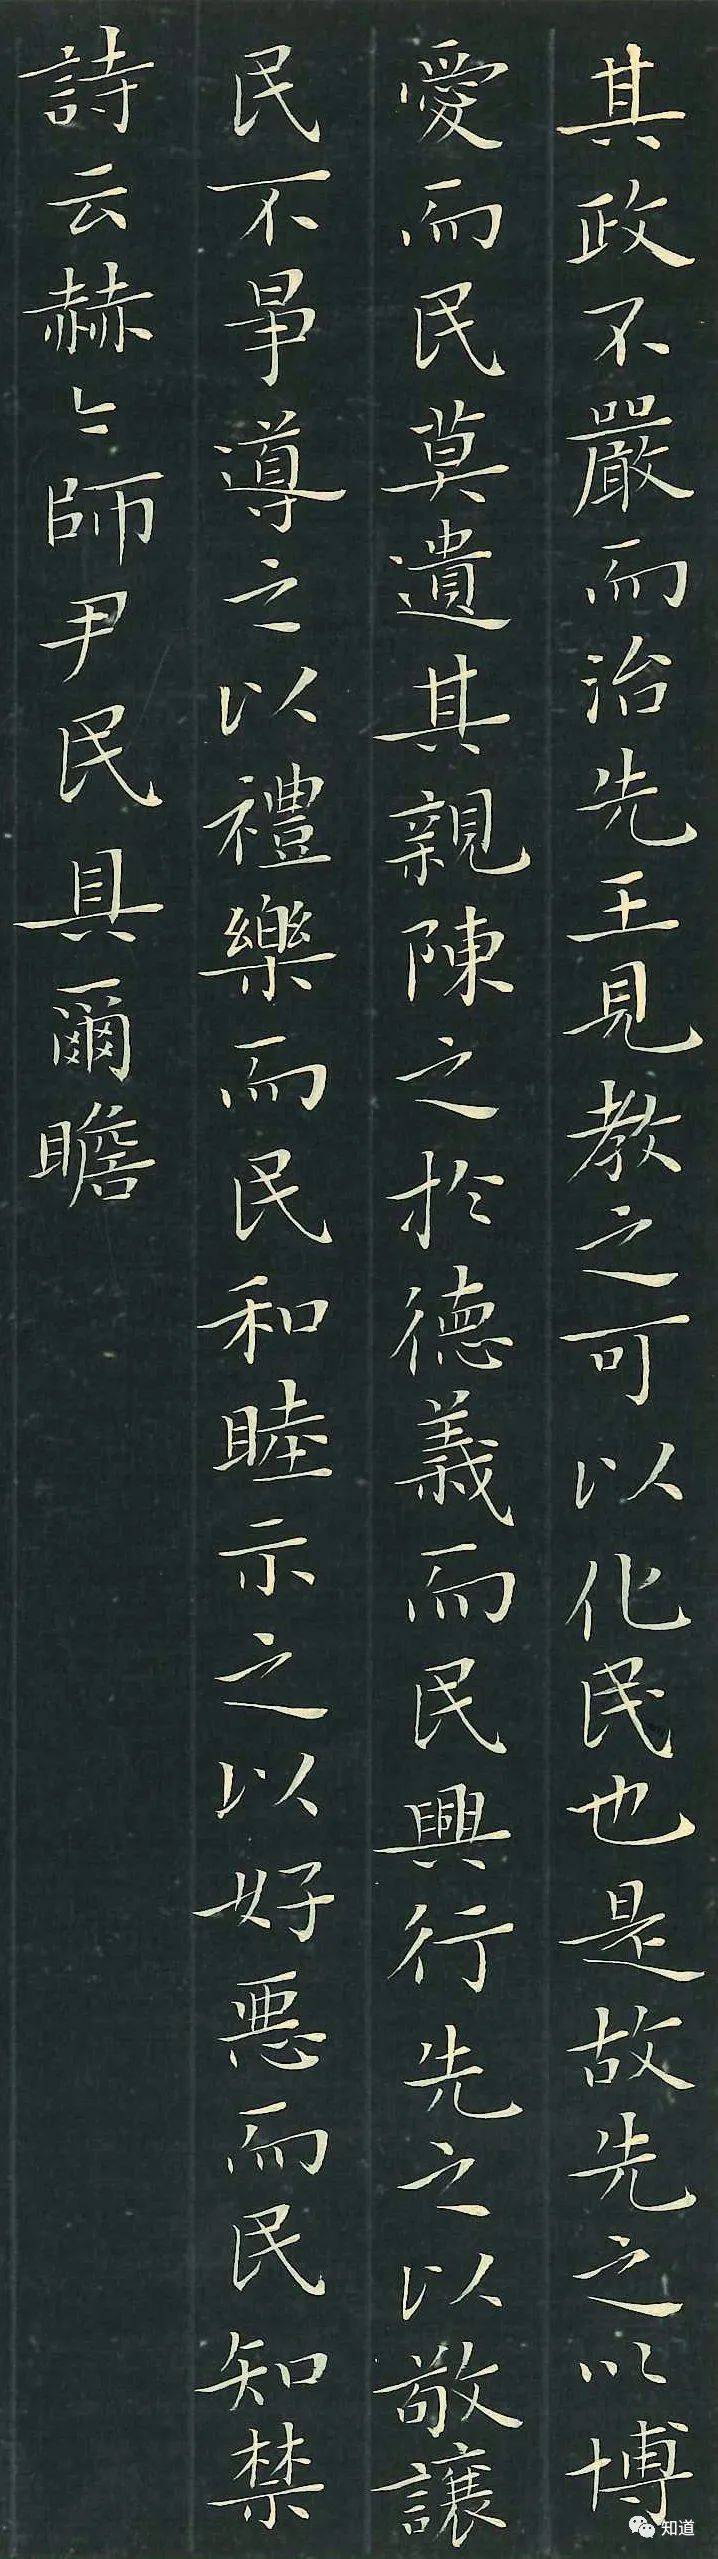 其政不嚴而治先王見教之可以化民也是故先之以博
愛而民莫遺其親陳之於德義而民興行先之以敬讓
民不爭導之以禮樂而民和睦示之以好惡而民知禁
詩云赫〻師尹民具爾瞻
知道